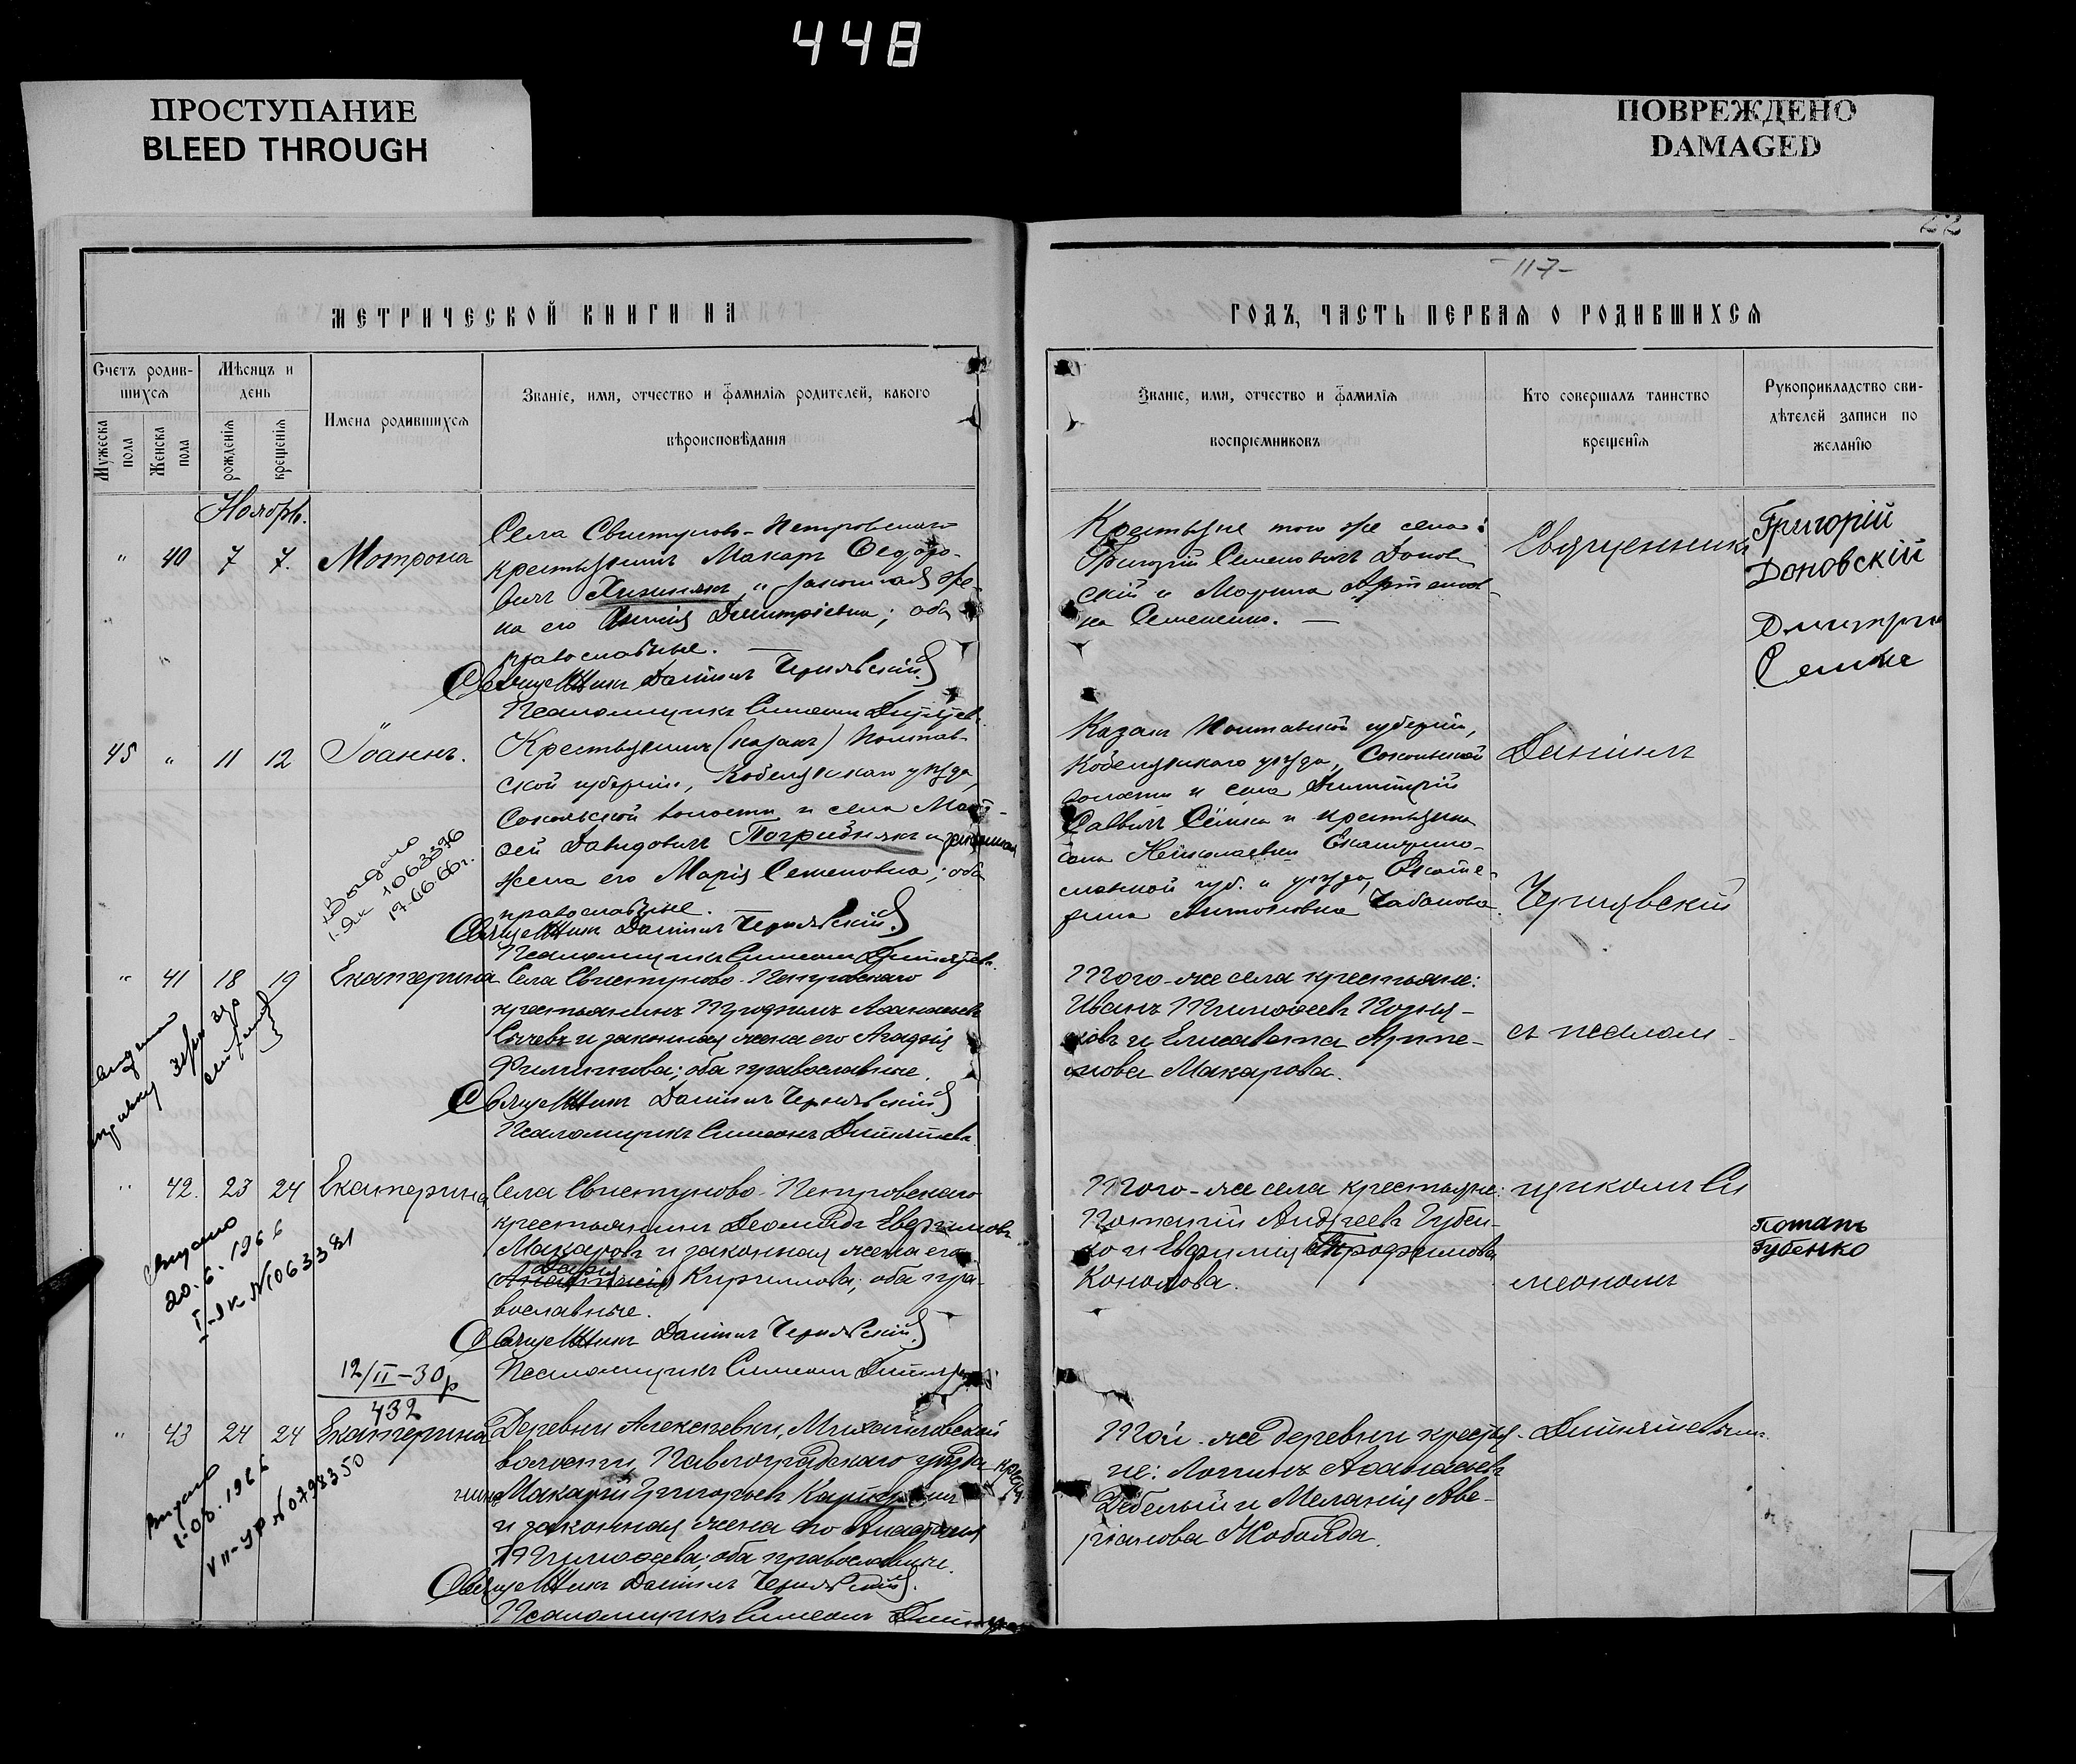 448
ПРОСТУПАНИЕ
BLEED THROUGH
ПОВРЕЖДЕНО
DAMAGED
22
-117-
МЕТРИЧЕСКОЙ КНИГИ НА
ГОДЪ, ЧАСТЬ ПЕРВАЯ О РОДИВШИХСЯ
Счетъ родив-
шихся
Мужеска пола
Женска пола
Мѣсяцъ и
день
рожденія
крещенія
Имена родившихся
Званіе, имя, отчество и фамилія родителей, какого
вѣроисповѣданія
Званіе, имя, отчество и фамилія
воспріемниковъ
Кто совершалъ таинство
крещенія
Рукоприкладство сви-
дѣтелей записи по
желанію
Ноябрь.
" 40 7 7. Мотрона
Села Свистуново-Петровскаго
крестьянинъ Макаръ Ѳедоро-
вичъ и законная же-
на его Димитріевна; оба
православные. —
Священникъ Даніилъ Чернявскій
Псаломщикъ Симеонъ
Крестьяне того же села:
Григорій Семеновичъ Донов-
скій и Марина Артемов-
на Семененко. —
Священникъ
Григорій
Доновскій
Дмитрій
45 " 11 12 Іоаннъ.
Крестьянинъ (казакъ) Полтав-
ской губерніи, Кобелякскаго уѣзда,
Сокольской волости и села Мат-
ѳей Давидовичъ Погрибнякъ и законная
жена его Марія Семеновна; оба
православные.
Священникъ Даніилъ Чернявскій
Псаломщикъ Симеонъ
Выдано
I-ЯК 1063376
17.06.66г.
Казакъ Полтавской губерніи,
Кобелякскаго уѣзда, Сокольской
волости и села Димитрій
Саввичъ и крестьянка
села Екатерино-
славской губ. и уѣзда, Екате-
рина Антоновна Чабанова.
Даніилъ
Чернявскій
" 41 18 19 Екатерина
Села Свистуново-Петровскаго
крестьянинъ Трофимъ Аѳанасьевъ
Сычевъ и законная жена его Агафія
Филиппова; оба православные.
Священникъ Даніилъ Чернявскій
Псаломщикъ Симеонъ
Того-же села крестьяне:
Иванъ Тимоѳеевъ
и Елисавета Арте-
мова Макарова.
съ псалом-
" 42. 23 24 Екатерина
Села Свистуново-Петровскаго
крестьянинъ Леонидъ Евфимовъ
Макаровъ и законная жена его
Дарія
Кириллова; оба пра-
вославные.
Священникъ Даніилъ Чернявскій
Псаломщикъ Симеонъ
Выдано
20.6.1966
I-ЯК №1063381
Того-же села крестьяне:
Потапій Андреевъ Губен-
ко и Евфимія Трофимова
Коновова.
щикомъ Си
меономъ
Потапъ
Губенко
12/II-30р
432
" 43 24 24 Екатерина
Деревни Алексѣевки, Михайловской
волости, Павлоградскаго уѣзда кресть-
нинъ Макарій Григорьевъ
и законная жена его Анастасія
Тимоѳеева; оба православные.
Священникъ Даніилъ Чернявскій
Псаломщикъ Симеонъ
VII-УР №0793350
Той-же деревни крестья-
не: Логинъ Аѳанасьевъ
Дебелый и Меланія Аве-
ріанова Жобояда.